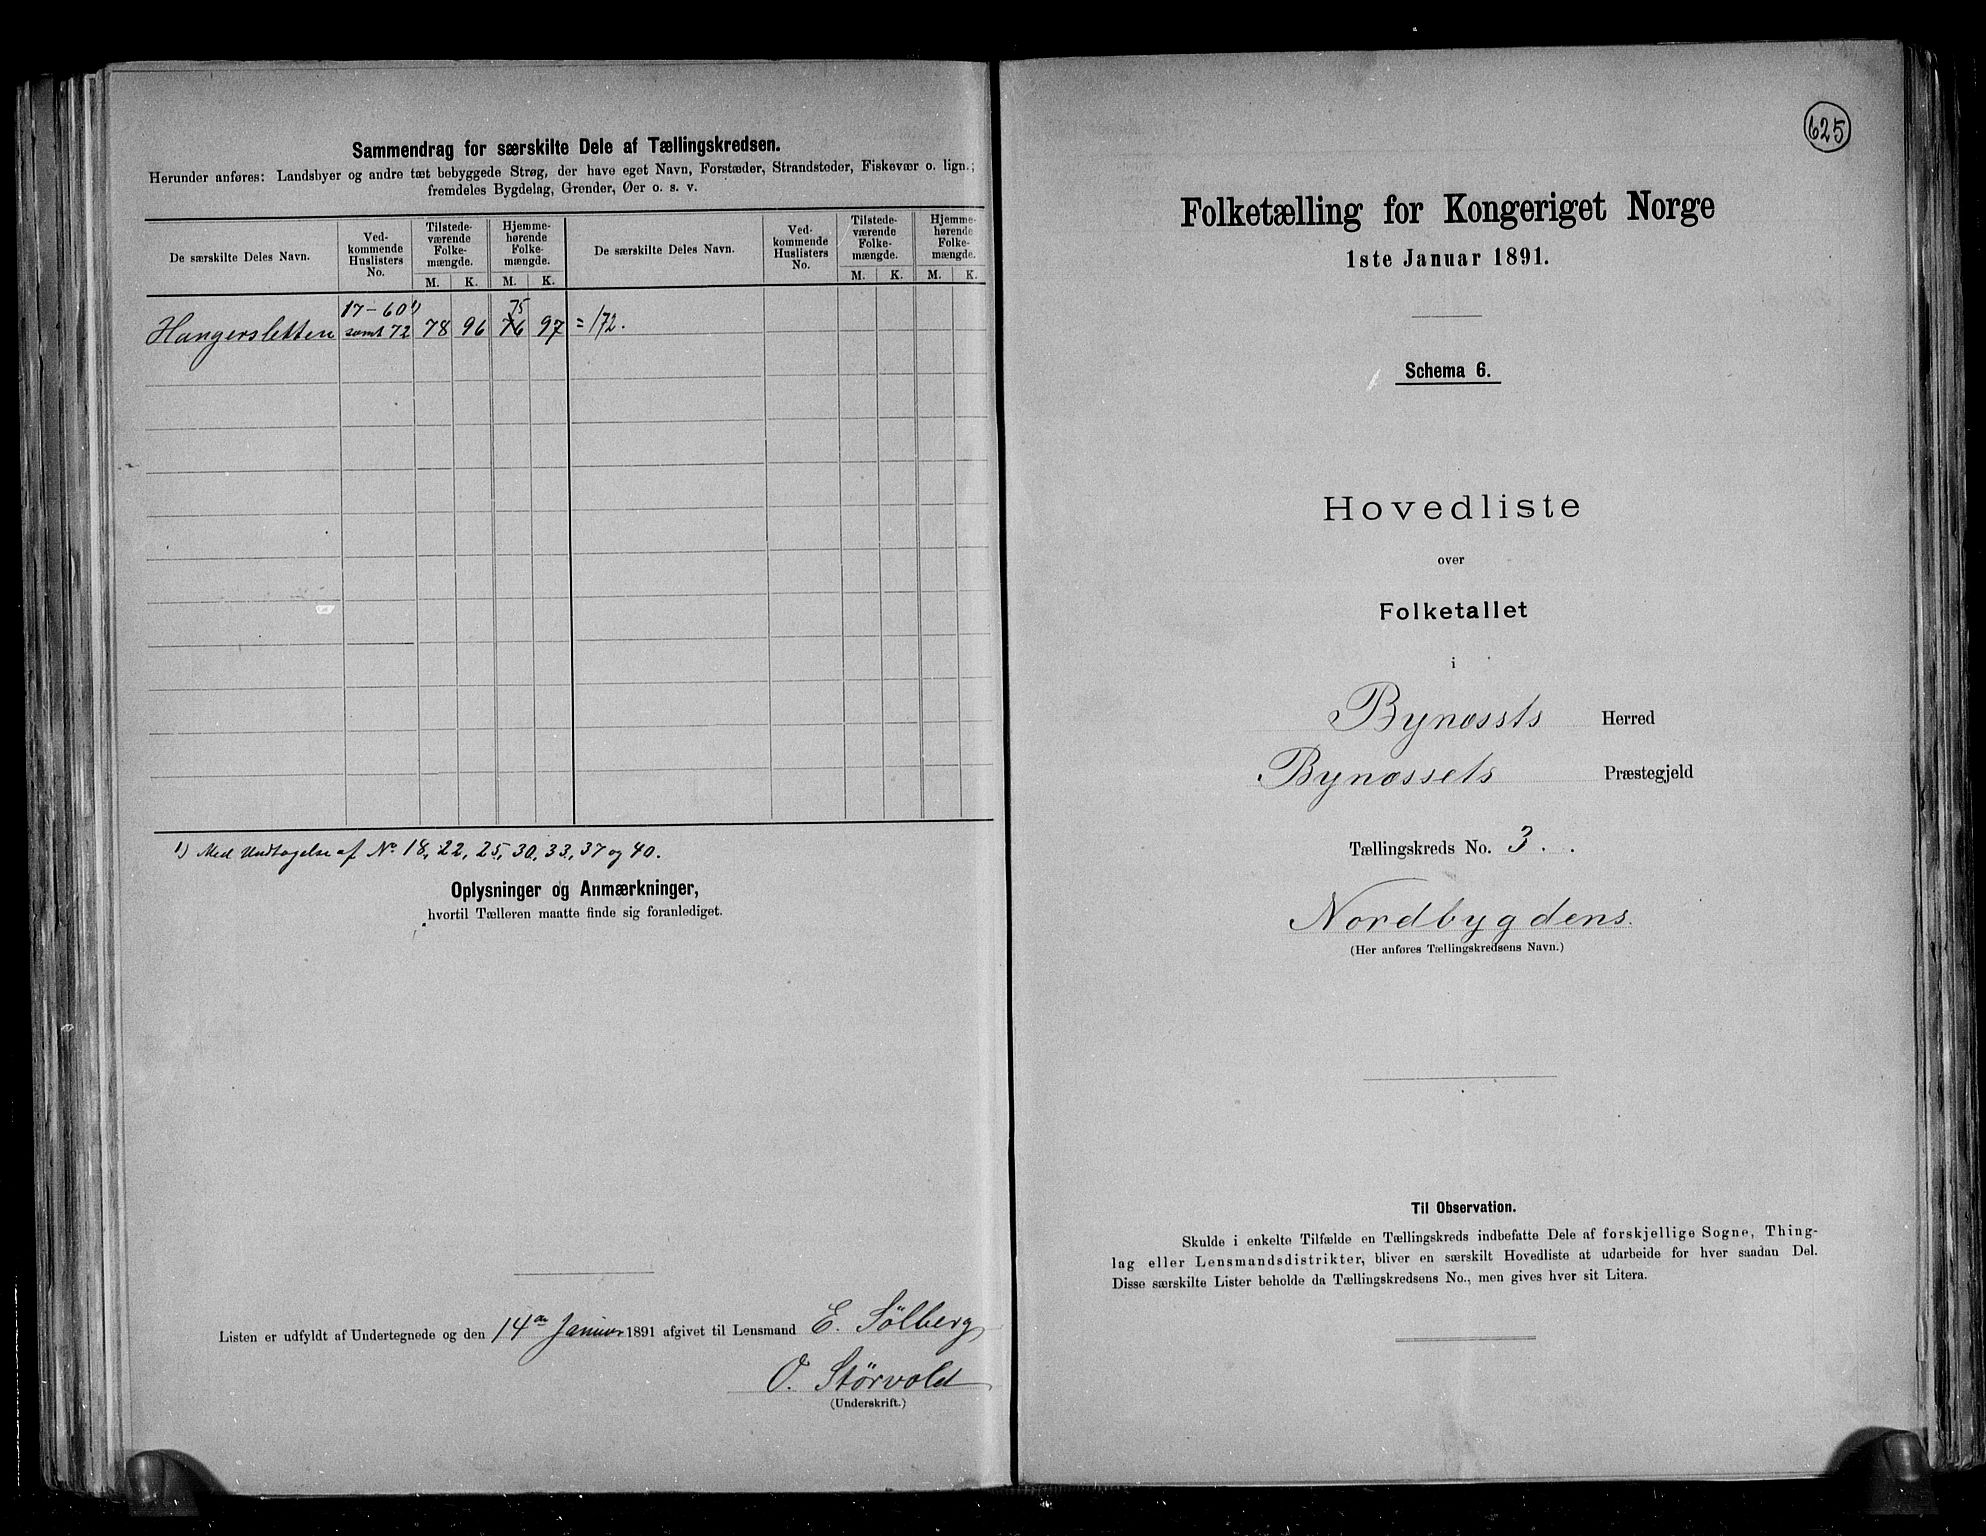 Sammendrag for særskilte Dele af Tællingskredsen.
Herunder anføres: Landsbyer og andre tæt bebyggede Strøg, der have eget Navn, Forstæder, Strandsteder, Fiskevær o. lign.;
fremdeles Bygdelag, Grender, Øer o. s. v.
De særskilte Deles Navn. Ved-kommende Huslisters No. Tilstede-værende Folke-mængde. Hjemme-hørende Folke-mængde. De særskilte Deles Navn. Ved-kommende Huslisters No. Tilstede-værende Folke-mængde. Hjemme-hørende Folke-mængde.
M. K. M. K. M. K. M. K.
17-60¹) 75
Hangersletten samt 72 78 96 76 97 = 172.
¹) Med Undtagelse af No. 18, 22, 25, 30, 33, 37 og 40.
Oplysninger og Anmærkninger,
hvortil Tælleren maatte finde sig foranlediget.
Listen er udfyldt af Undertegnede og den 14de Januar 1891 afgivet til Lensmand E. Sølberg
O. Størvold
(Underskrift.)
625
Folketælling for Kongeriget Norge
1ste Januar 1891.
Schema 6.
Hovedliste
over
Folketallet
i
Bynessts Herred
Bynessets Præstegjeld
Tællingskreds No. 3.
Nordbygdens.
(Her anføres Tællingskredsens Navn.)
Til Observation.
Skulde i enkelte Tilfælde en Tællingskreds indbefatte Dele af forskjellige Sogne, Thing-
lag eller Lensmandsdistrikter, bliver en særskilt Hovedliste at udarbeide for hver saadan Del.
Disse særskilte Lister beholde da Tællingskredsens No., men gives hver sit Litera.